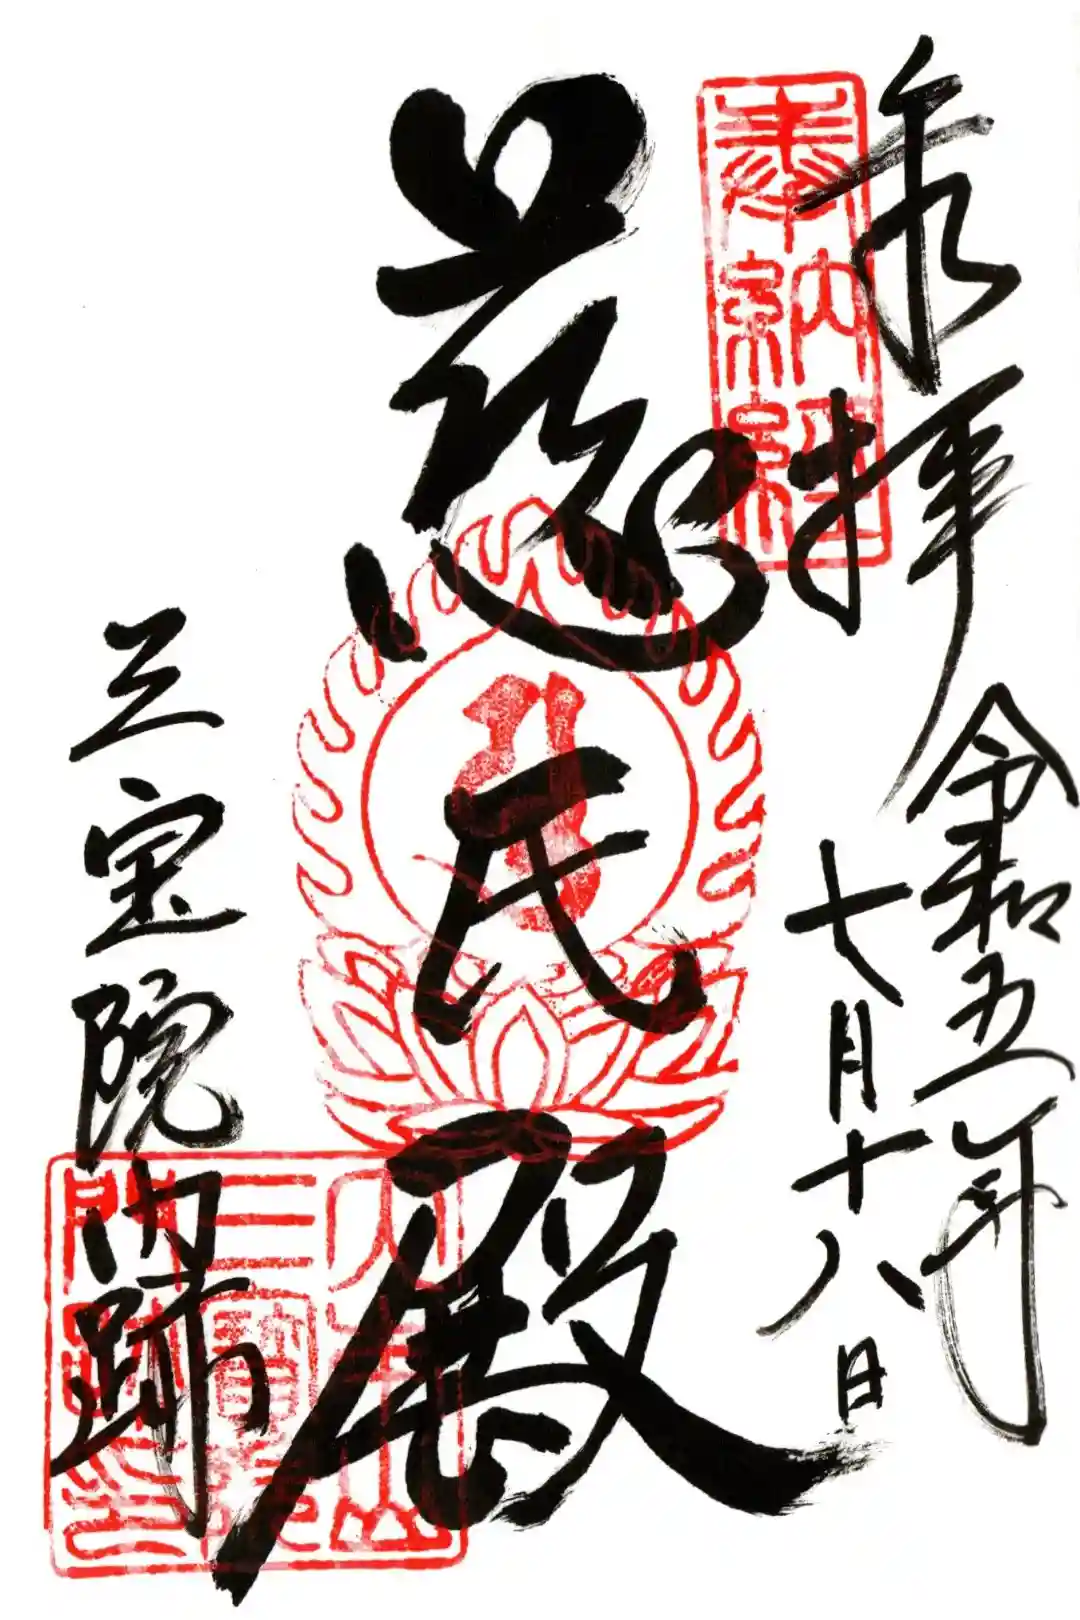 奉拝
令和五年
七月十八日
奉納經
慈氏殿
三宝院門跡
大本山
三寶院
門跡印